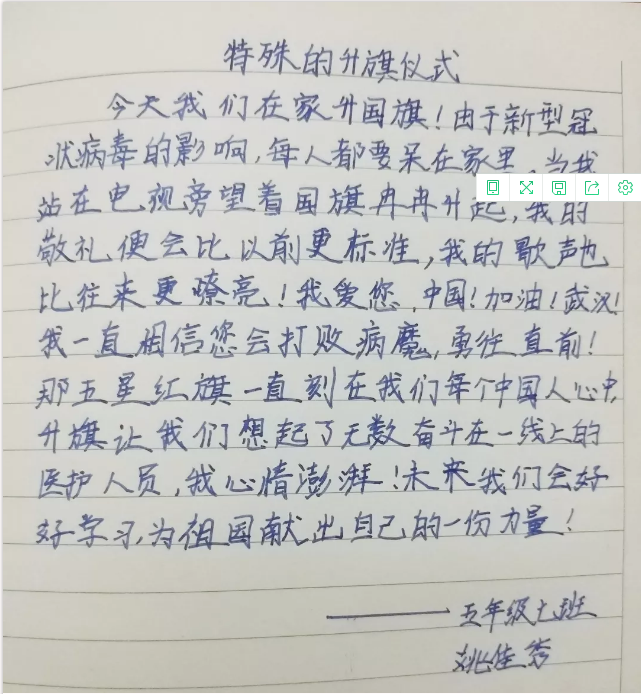 特殊的升旗仪式
今天我们在家升国旗！由于新型冠
状病毒的影响，每人都要呆在家里，当我
站在电视旁望着国旗冉冉升起，我的
敬礼便会比以前更标准，我的歌声也
比往来更嘹亮！我爱您，中国！加油！武汉！
我一直相信您会打败病魔，勇往直前！
那五星红旗一直刻在我们每个中国人心中，
升旗让我们想起了无数奋斗在一线上的
医护人员，我心情澎湃！未来我们会好
好学习，为祖国献出自己的一份力量！
——五年级七班
姚佳秀